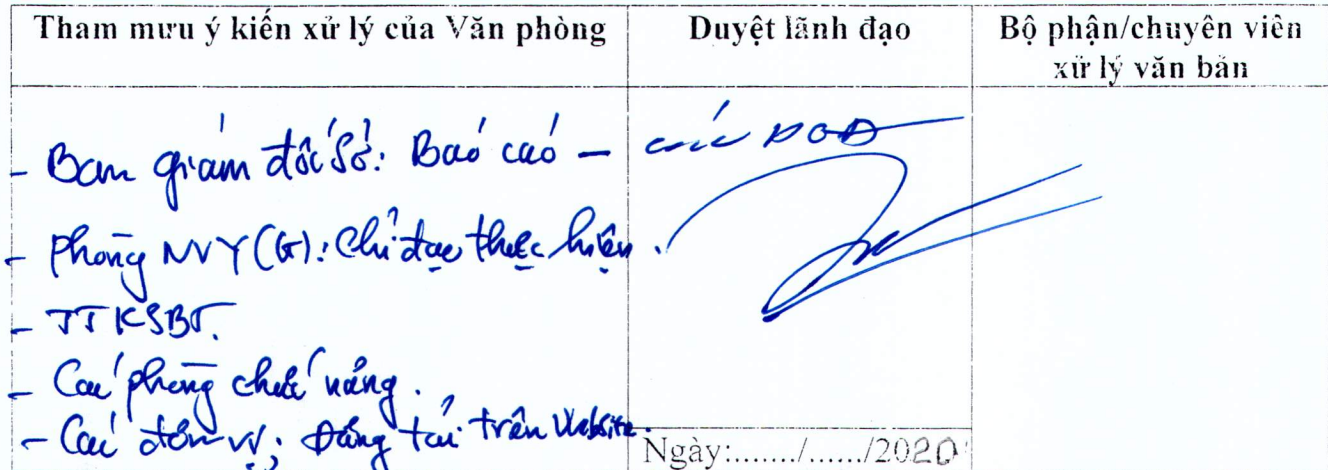 Tham mưu ý kiến xử lý của Văn phòng
Duyệt lãnh đạo
Bộ phận/chuyên viên
xử lý văn bản
- Ban giám đốc Sở: Báo cáo -
các
- Phòng NVY(G): Chỉ đạo thực hiện.
- TTKSBT.
- Các phòng chức năng.
- Các đơn vị; Đăng tải trên Website.
Ngày:......./....../2020